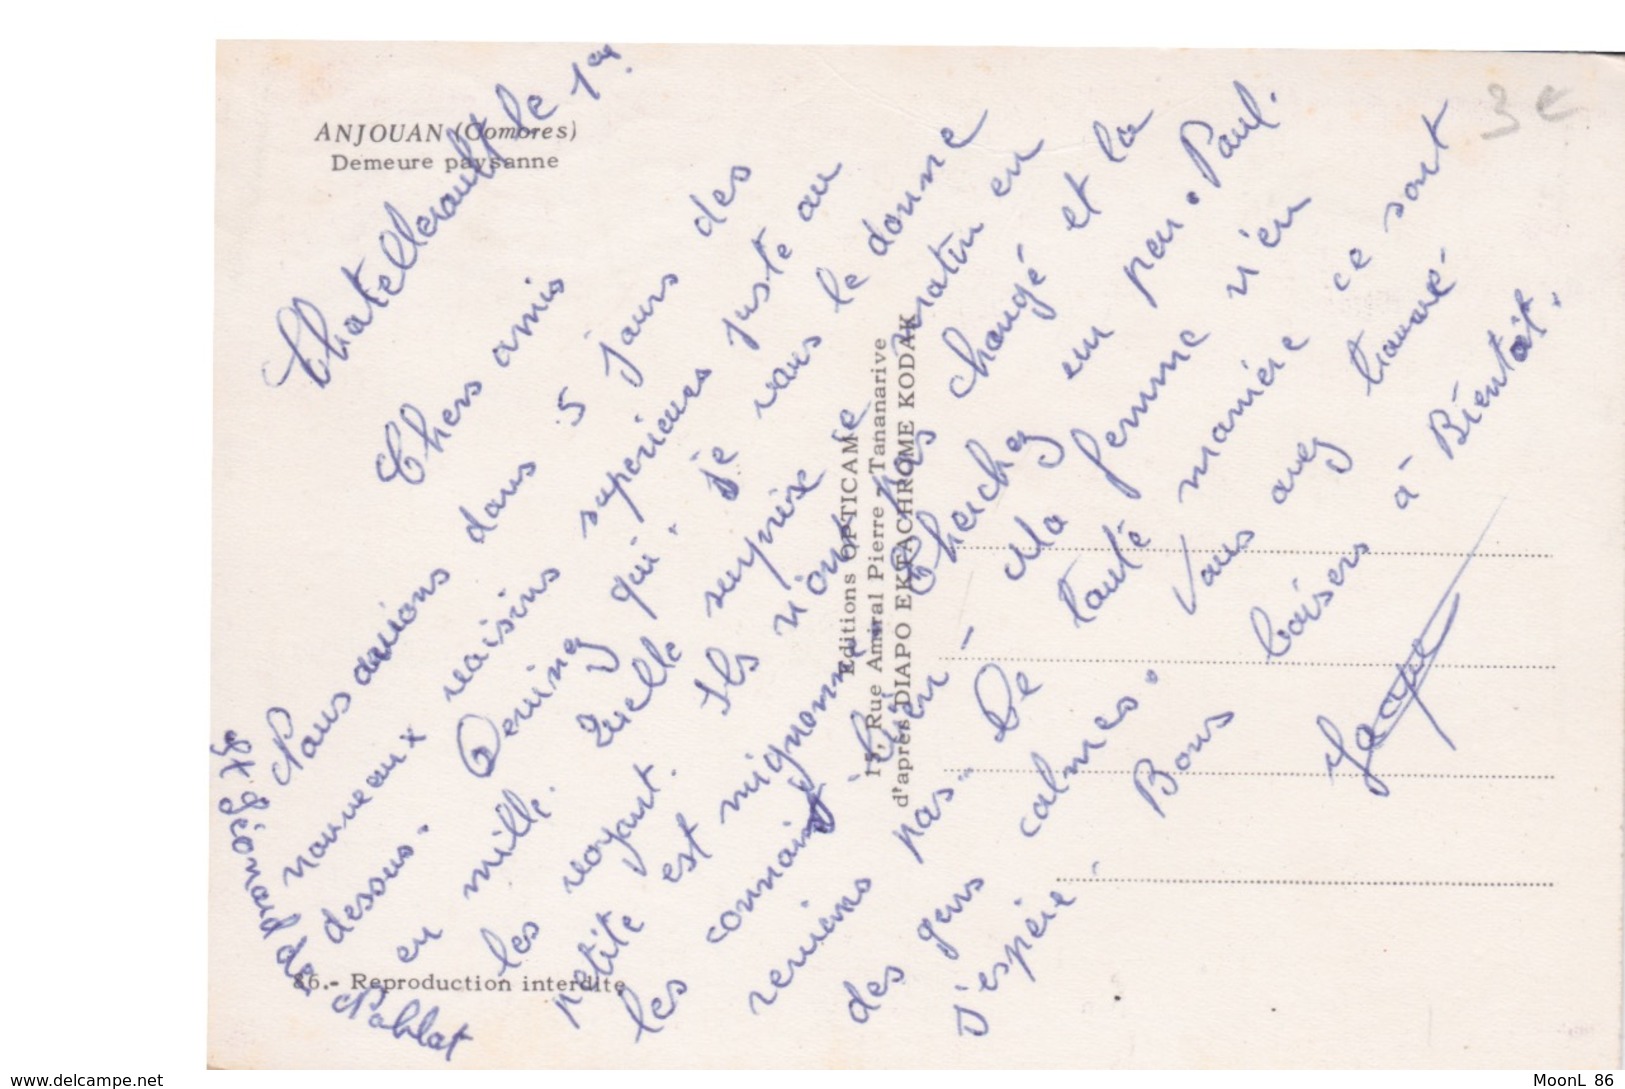 ANJOUAN (Comores)
Demeure paysanne
3 €
Chatellerault le 1er
Chers amis
Nous avions dans 5 jours des
nouveaux voisins superieurs juste au
dessus. Devinez qui. je vous le donne
en mille. Quelle surprise matin en
les voyant. Ils n'ont pas changé et la
petite est mignonne Cherchez un peu. Paul.
les connait bien - Ma femme n'en
reviens pas. De toute manière ce sont
des gens calmes. Vous avez trouvé -
j'espère. Bons baisers à Bientôt.
Jacque
St Léonard de Noblat
Editions OPTICAM
15, Rue Amiral Pierre Tananarive
d'après DIAPO EKTACHROME KODAK
86.- Reproduction interdite
www.delcampe.net
MoonL 86